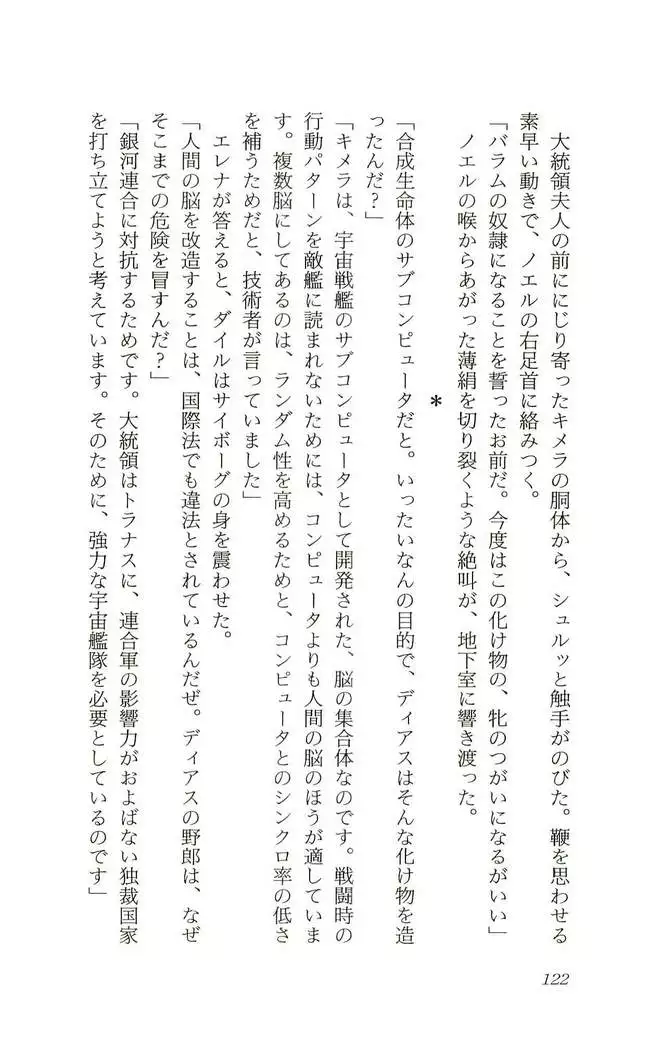 大統領夫人の前ににじり寄ったキメラの胴体から、シュルッと触手がのびた。鞭を思わせる
素早い動きで、ノエルの右足首に絡みつく。
「バラムの奴隷になることを誓ったお前だ。今度はこの化け物の、牝のつがいになるがいい」
　ノエルの喉からあがった薄絹を切り裂くような絶叫が、地下室に響き渡った。
＊
「合成生命体のサブコンピュータだと。いったいなんの目的で、ディアスはそんな化け物を造
ったんだ？」
「キメラは、宇宙戦艦のサブコンピュータとして開発された、脳の集合体なのです。戦闘時の
行動パターンを敵艦に読まれないためには、コンピュータよりも人間の脳のほうが適していま
す。複数脳にしてあるのは、ランダム性を高めるためと、コンピュータとのシンクロ率の低さ
を補うためだと、技術者が言っていました」
　エレナが答えると、ダイルはサイボーグの身を震わせた。
「人間の脳を改造することは、国際法でも違法とされているんだぜ。ディアスの野郎は、なぜ
そこまでの危険を冒すんだ？」
「銀河連合に対抗するためです。大統領はトラナスに、連合軍の影響力がおよばない独裁国家
を打ち立てようと考えています。そのために、強力な宇宙艦隊を必要としているのです」
122